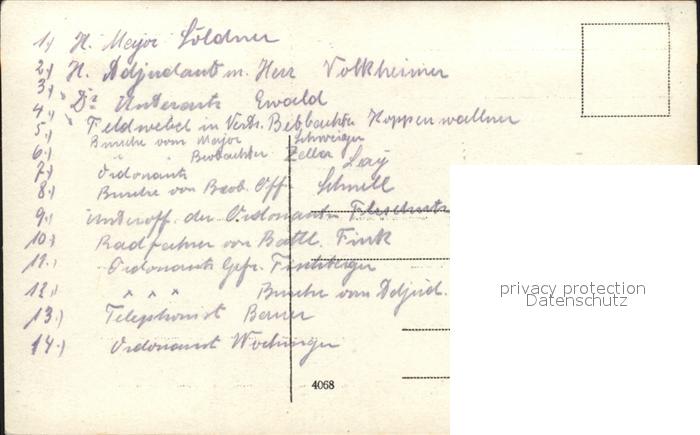 1.) H. Major Söldner
2.) H. Adjudant m. Herr Volkheimer
3.) Dr. Unterarzt Ewald
4.) Feldwebel in Vertr. Beobachter Hoppenwallner
5.) Bursche vom Major Schweiger
6.) " " Beobachter Zeller
7.) Ordonanz Lay
8.) Bursche von Beob. Off. Schnell
9.) Unteroff. der Ordonantz
10.) Radfahrer von Batll. Fink
11.) Ordonantz Gefr. Fischberger
12.) " " " Bursche vom Adjud.
13.) Telephonist Berner
14.) Ordonanst Wochinger
4068
privacy protection
Datenschutz